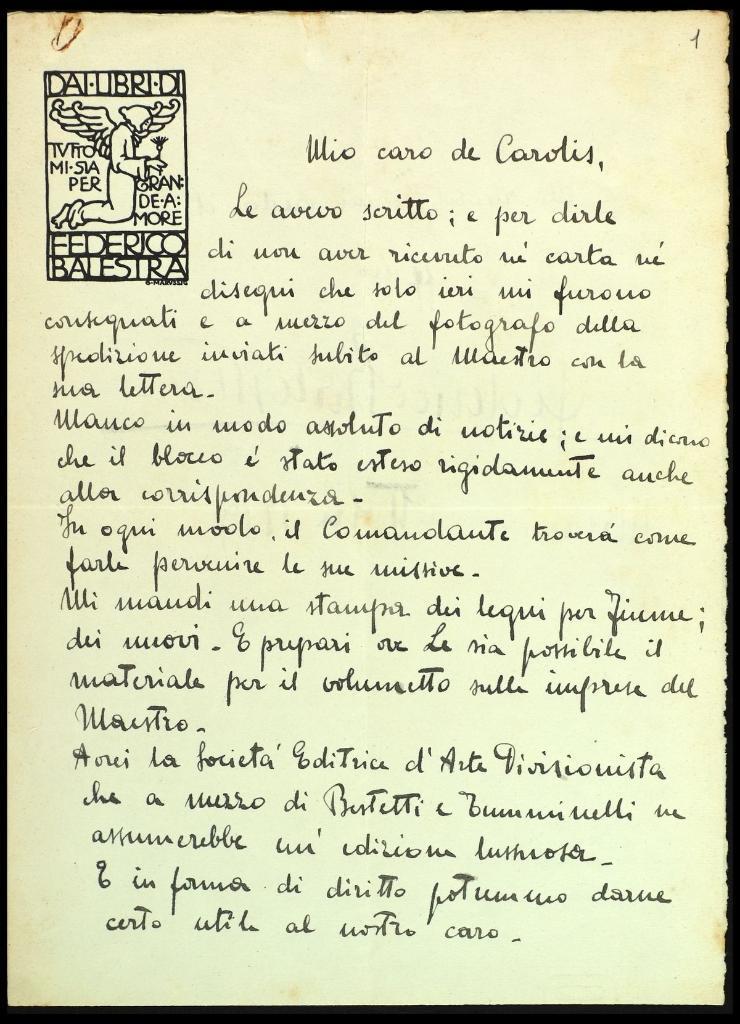 1
DAI·LIBRI·DI
TVTTO
MI·SIA
PER
GRAN:
DE·A:
MORE
FEDERICO
BALESTRA
Mio caro de Carolis,
Le avevo scritto; e per dirle
di non aver ricevuto né carta né
disegni che solo ieri mi furono
consegnati e a mezzo del fotografo della
spedizione inviati subito al Maestro con la
sua lettera.
Manco in modo assoluto di notizie; e mi dicono
che il blocco é stato esteso rigidamente anche
alla corrispondenza.
In ogni modo, il Comandante troverá come
farle pervenire le sue missive.
Mi mandi una stampa dei legni per Fiume;
dei nuovi. E prepari ove Le sia possibile il
materiale per il volumetto sulle imprese del
Maestro.
Avrei la Societá Editrice d'Arte Divisionista
che a mezzo di Bestetti e Tumminelli ne
assumerebbe un' edizione lussuosa.
E in forma di diritto potremmo darne
certo utile al nostro caro.